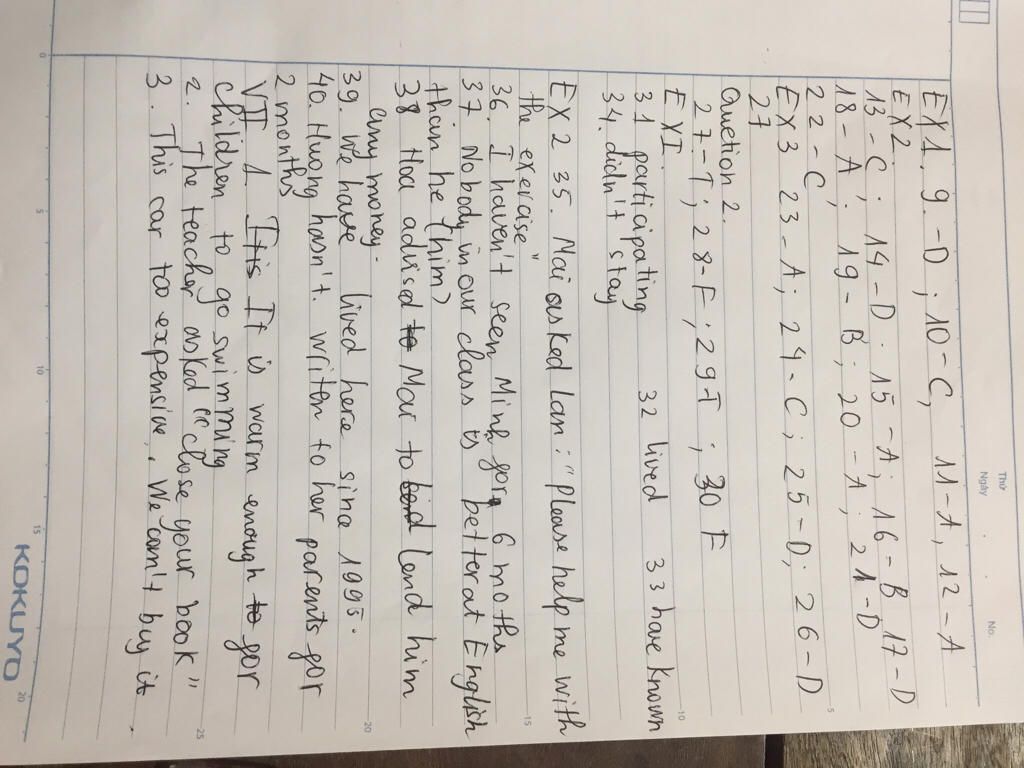 Thứ
Ngày
No.
EX1. 9-D; 10-C, 11-A, 12-A
EX2.
13-C; 14-D. 15-A; 16-B 17-D
18-A; 19-B; 20-A; 21-D
22-C
EX3 23-A; 24-C; 25-D; 26-D
27
Question 2.
27-T; 28-F; 29-T; 30 F
EXI.
31 participating 32 lived 33 have known
34. didn't stay
EX2 35. Mai asked Lan: "Please help me with
the exercise"
36. I haven't seen Minh for 6 moths
37 Nobody in our class is better at English
than he (him)
38 Hoa advised to Mar to lend Lend him
any money.
39. We have lived here sina 1995.
40. Huong hasn't. writen to her parents for
2 months
VII 1. It is It is warm enough to for
children to go swimming
2. The teacher asked "close your book"
3. This car too expensive. We can't buy it.
0
5
10
15
20
5
10
15
20
25
KOKUYO